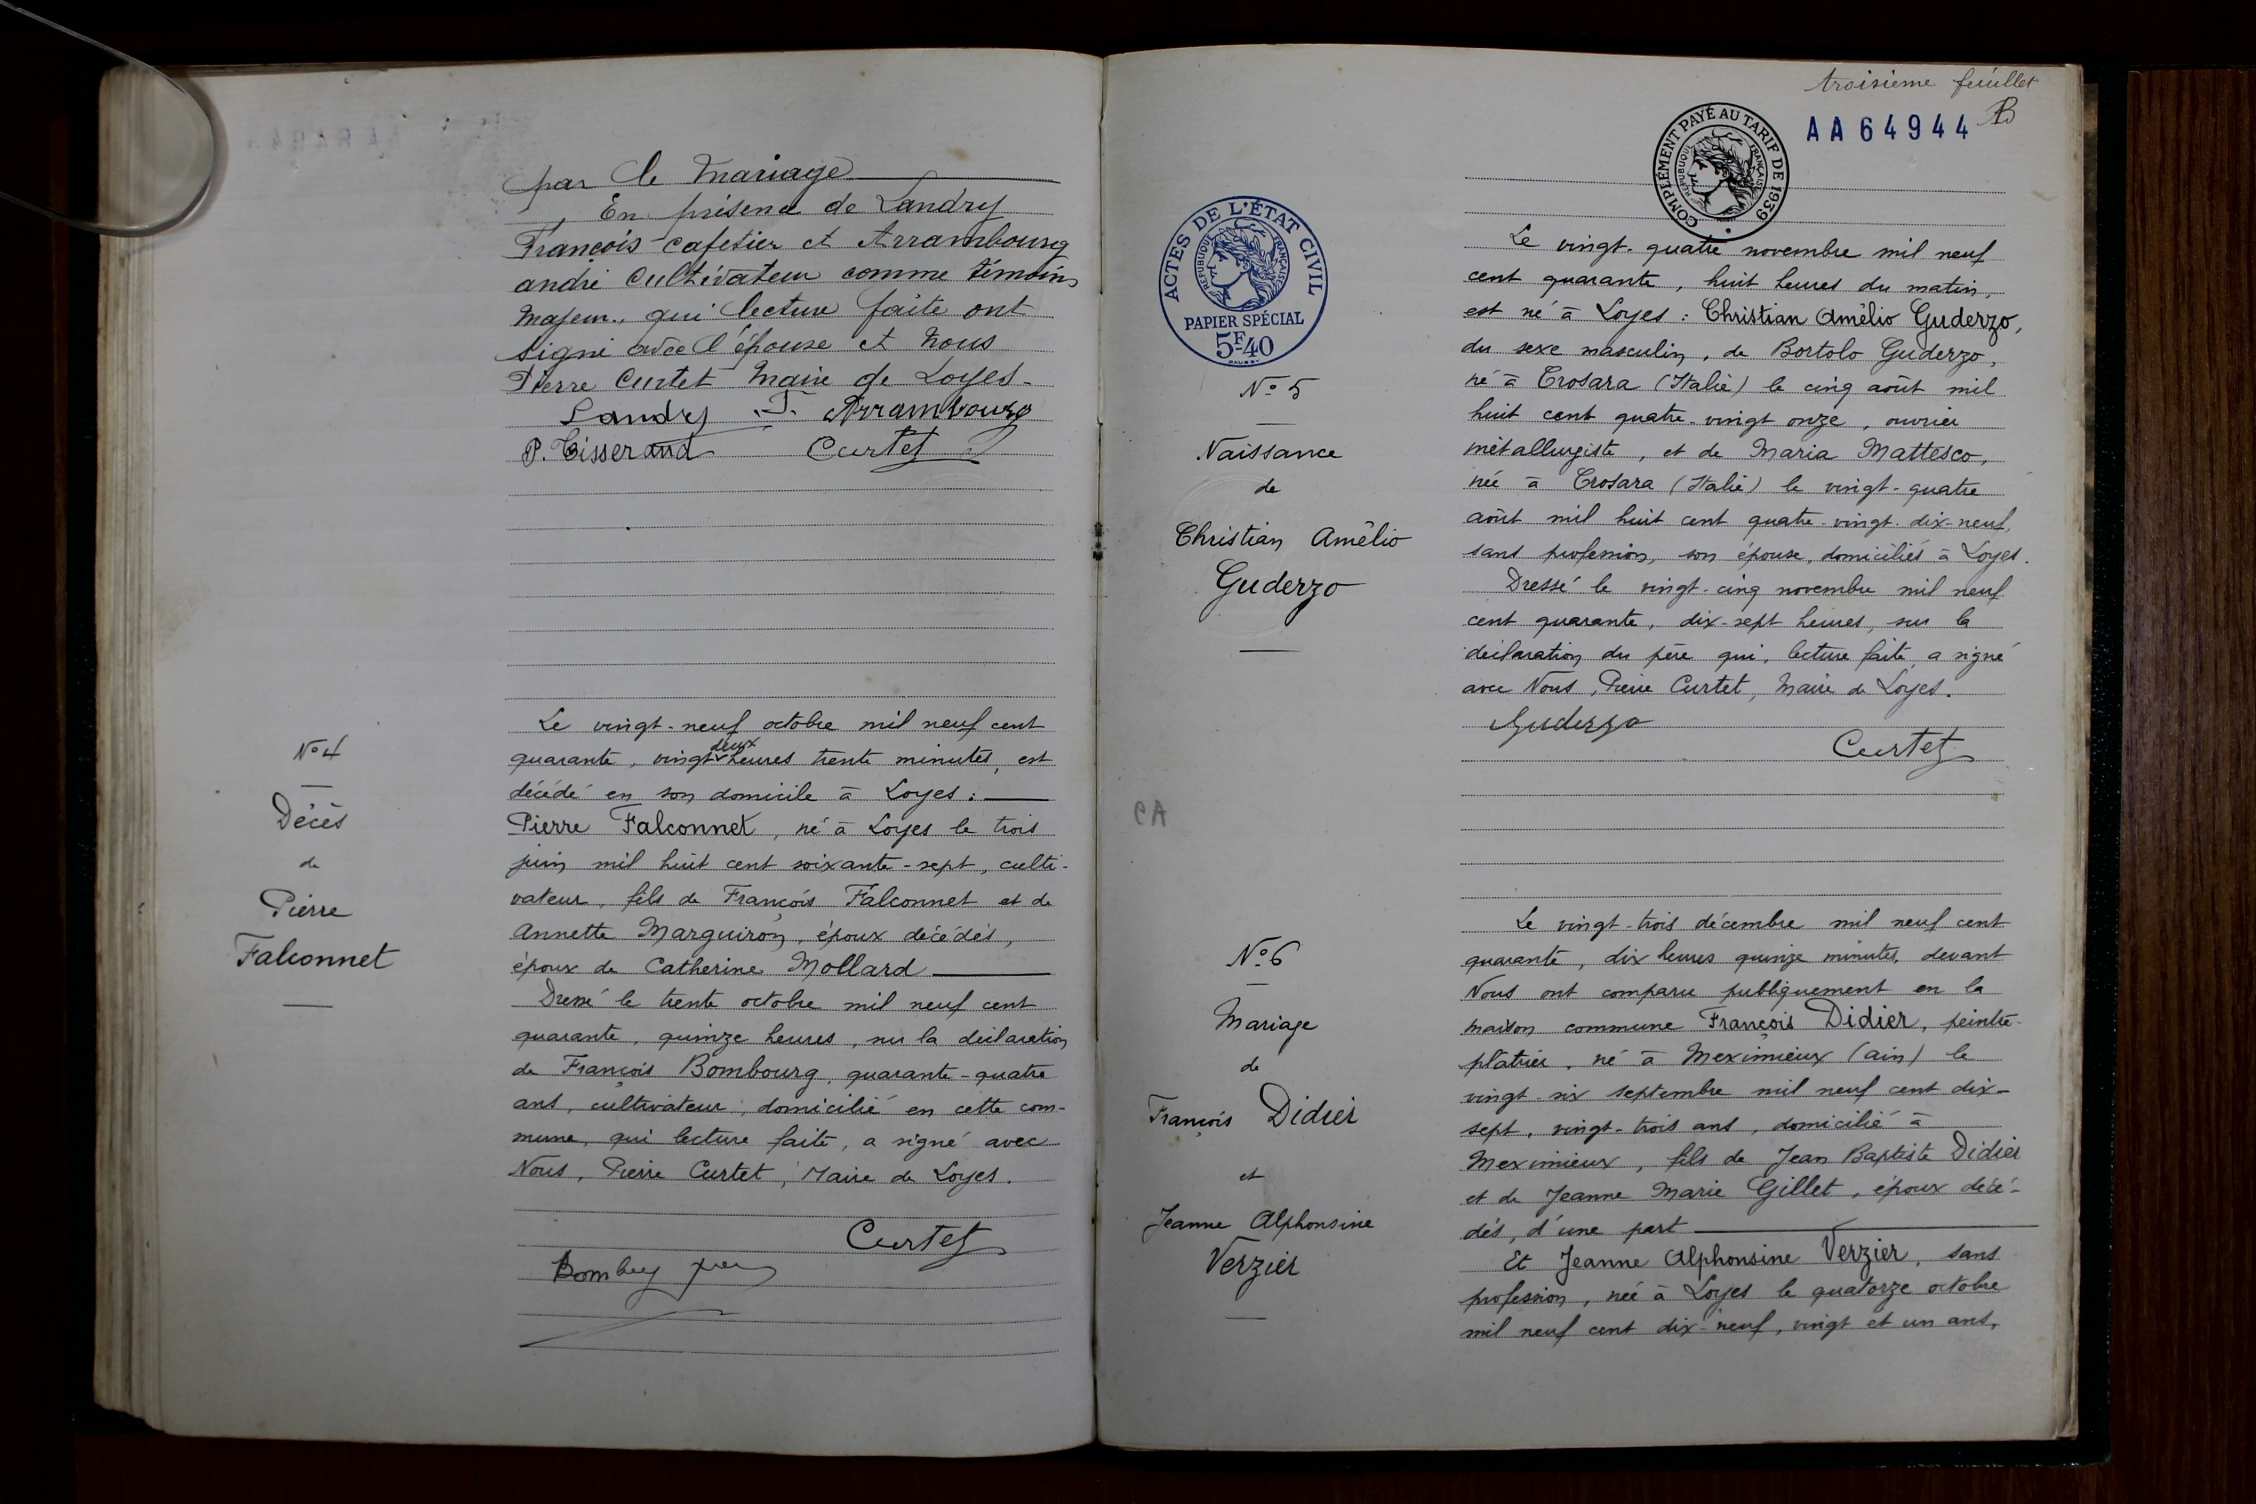 par le mariage
En présence de Landry
François cafetier et Arrambourg
andré Cultivateur comme témoins
majeur, qui lecture faite ont
signé avec l'épouse et Nous
Pierre Curtet Maire de Loyes.
Landry F. Arrambourg
P. Tisserand Curtet
N° 4
Décès
de
Pierre
Falconnet
Le vingt-neuf octobre mil neuf cent
quarante, vingt deux heures trente minutes, est
décédé en son domicile à Loyes :
Pierre Falconnet, né à Loyes le trois
juin mil huit cent soixante-sept, culti-
vateur, fils de François Falconnet et de
Annette Marguiron, époux décédés,
époux de Catherine Mollard
Dressé le trente octobre mil neuf cent
quarante, quinze heures, sur la déclaration
de François Bombourg, quarante-quatre
ans, cultivateur, domicilié en cette com-
mune, qui lecture faite, a signé avec
Nous, Pierre Curtet, Maire de Loyes.
Curtet
troisième feuillet
AA64944
COMPLÉMENT PAYÉ AU TARIF DE 1939
RÉPUBLIQUE FRANÇAISE
ACTES DE L'ÉTAT CIVIL
RÉPUBLIQUE FRANÇAISE
PAPIER SPÉCIAL
5F40
N° 5
Naissance
de
Christian Amélio
Guderzo
Le vingt-quatre novembre mil neuf
cent quarante, huit heures du matin,
est né à Loyes : Christian Amélio Guderzo,
du sexe masculin, de Bortolo Guderzo,
né à Crosara (Italie) le cinq août mil
huit cent quatre-vingt onze, ouvrier
métallurgiste, et de Maria Mattesco,
née à Crosara (Italie) le vingt-quatre
août mil huit cent quatre-vingt-dix-neuf,
sans profession, son épouse, domiciliés à Loyes.
Dressé le vingt-cinq novembre mil neuf
cent quarante, dix-sept heures, sur la
déclaration du père qui, lecture faite, a signé
avec Nous, Pierre Curtet, Maire de Loyes.
Guderzo
Curtet
N° 6
Mariage
de
François Didier
et
Jeanne Alphonsine
Verzier
Le vingt-trois décembre mil neuf cent
quarante, dix heures quinze minutes, devant
Nous ont comparu publiquement en la
maison commune François Didier, peintre-
plâtrier, né à Meximieux (ain) le
vingt-six septembre mil neuf cent dix-
sept, vingt-trois ans, domicilié à
Meximieux, fils de Jean Baptiste Didier
et de Jeanne Marie Gillet, époux décé-
dés, d'une part
Et Jeanne Alphonsine Verzier, sans
profession, née à Loyes le quatorze octobre
mil neuf cent dix-neuf, vingt et un ans,